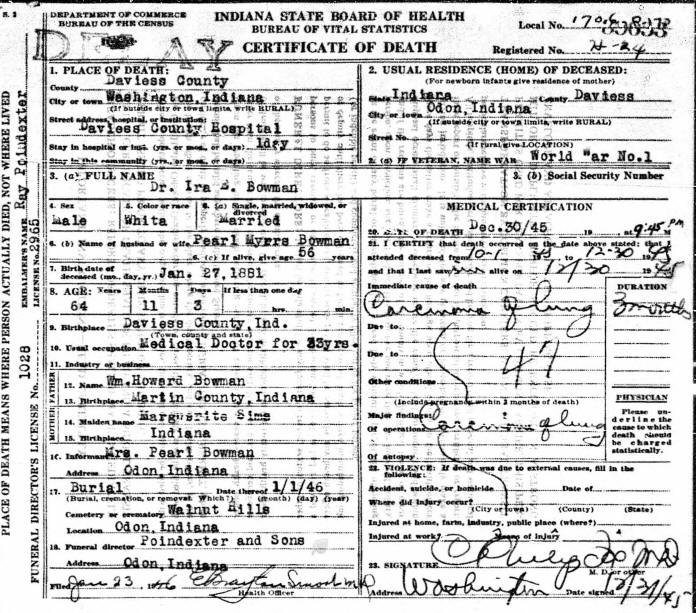 S. 2
DEPARTMENT OF COMMERCE
BUREAU OF THE CENSUS
INDIANA STATE BOARD OF HEALTH
BUREAU OF VITAL STATISTICS
CERTIFICATE OF DEATH
Local No.
Registered No. H-24
DELAY
1. PLACE OF DEATH:
County Daviess County
City or town Washington, Indiana
(If outside city or town limits, write RURAL)
Street address, hospital, or institution:
Daviess County Hospital
Stay in hospital or inst. (yrs. or mos. or days) 1day
Stay in this community (yrs. or mos. or days)
2. USUAL RESIDENCE (HOME) OF DECEASED:
(For newborn infants give residence of mother)
State Indiana County Daviess
City or town Odon, Indiana
(If outside city or town limits, write RURAL)
Street No.
(If rural give LOCATION)
2. (a) IF VETERAN, NAME WAR World War No.1
3. (a) FULL NAME
Dr. Ira E. Bowman
3. (b) Social Security Number
4. Sex
Male
5. Color or race
Whita
6. (a) Single, married, widowed, or divorced
Married
6. (b) Name of husband or wife Pearl Myers Bowman
6. (c) If alive, give age 56 years
7. Birth date of
deceased (mo., day, yr.) Jan. 27,1881
8. AGE: Years Months Days If less than one day
64 11 3 hrs. min.
9. Birthplace Daviess County, Ind.
(Town, county and state)
10. Usual occupation Medical Doctor for 33yrs.
11. Industry or business
FATHER
12. Name Wm. Howard Bowman
13. Birthplace Martin County, Indiana
MOTHER
14. Maiden name Marguerite Sims
15. Birthplace Indiana
16. Informant Mrs. Pearl Bowman
Address Odon, Indiana
17. Burial Date thereof 1/1/46
(Burial, cremation, or removal. Which?) (month) (day) (year)
Cemetery or crematory Walnut Hills
Location Odon, Indiana
18. Funeral director Poindexter and Sons
Address Odon, Indiana
Filed Jan 23, 1946
Health Officer
MEDICAL CERTIFICATION
20. DATE OF DEATH Dec.30/45 19 at 9:45 P.M
21. I CERTIFY that death occurred on the date above stated; that I
attended deceased from 10-1 1945, to 12-30 1945
and that I last saw him alive on 12/30 1945
Immediate cause of death
Carcinoma of lung
DURATION
3 months
Due to
Due to
47
Other conditions
(Include pregnancy within 3 months of death)
Major findings:
Of operations Carcinoma of lung
Of autopsy
PHYSICIAN
Please underline
the cause to which
death should
be charged
statistically.
22. VIOLENCE: If death was due to external causes, fill in the
following:
Accident, suicide, or homicide Date of
Where did injury occur?
(City or town) (County) (State)
Injured at home, farm, industry, public place (where?)
Injured at work? Means of injury
23. SIGNATURE
M. D. or other
Address Washington Date signed 12/31/45
PLACE OF DEATH MEANS WHERE PERSON ACTUALLY DIED, NOT WHERE LIVED
FUNERAL DIRECTOR'S LICENSE No. 1028
EMBALMER'S NAME Ray Poindexter
LICENSE No. 2965